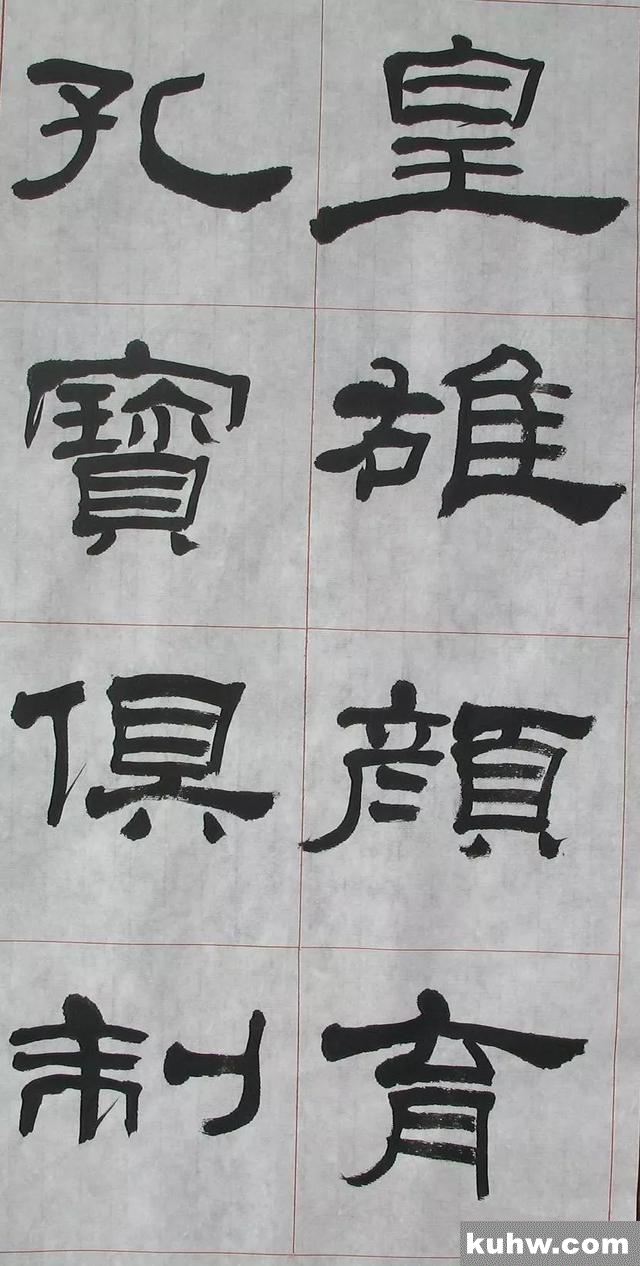 皇雄顏育
孔寶俱制
kuhw.com